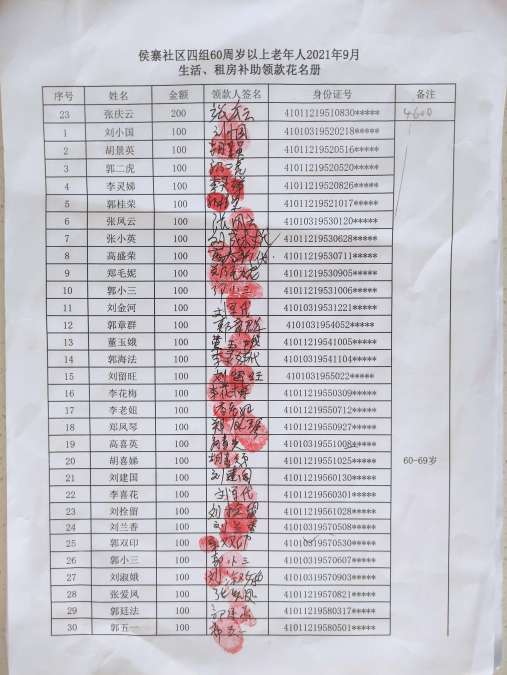 侯寨社区四组60周岁以上老年人2021年9月
生活、租房补助领款花名册
序号 姓名 金额 领款人签名 身份证号 备注
23 张庆云 200 41011219510830***** 4600
1 刘小国 100 41010319520218*****
2 胡景英 100 41011219520516*****
3 郭二虎 100 41011219520520*****
4 李灵娣 100 41011219520826*****
5 郭桂荣 100 41011219521017*****
6 张凤云 100 41010319530120*****
7 张小英 100 41011219530628*****
8 高盛荣 100 41011219530711*****
9 郑毛妮 100 41011219530905*****
10 郭小三 100 郭小三 41011219531006*****
11 刘金河 100 41010319531221*****
12 郭章群 100 郭章群 4101031954052*****
13 董玉娥 100 董玉娥 41011219541005*****
14 郭海法 100 41010319541104*****
15 刘留旺 100 刘留旺 4101031955022*****
16 李花梅 100 李花梅 41011219550309*****
17 李老妞 100 41011219550712*****
18 郑凤琴 100 41011219550927*****
19 高喜英 100 41010319551008*****
20 胡喜娣 100 胡喜娣 41011219551025***** 60-69岁
21 刘建国 100 刘建国 41011219560130*****
22 李喜花 100 41011219560301*****
23 刘拴留 100 刘拴留 41011219561028*****
24 刘兰香 100 刘兰香 41010319570508*****
25 郭双印 100 41010319570530*****
26 郭小三 100 郭小三 41010319570607*****
27 刘淑娥 100 41010319570903*****
28 张爱凤 100 41011219570821*****
29 郭廷法 100 41011219580317*****
30 郭五一 100 郭五一 41011219580501*****